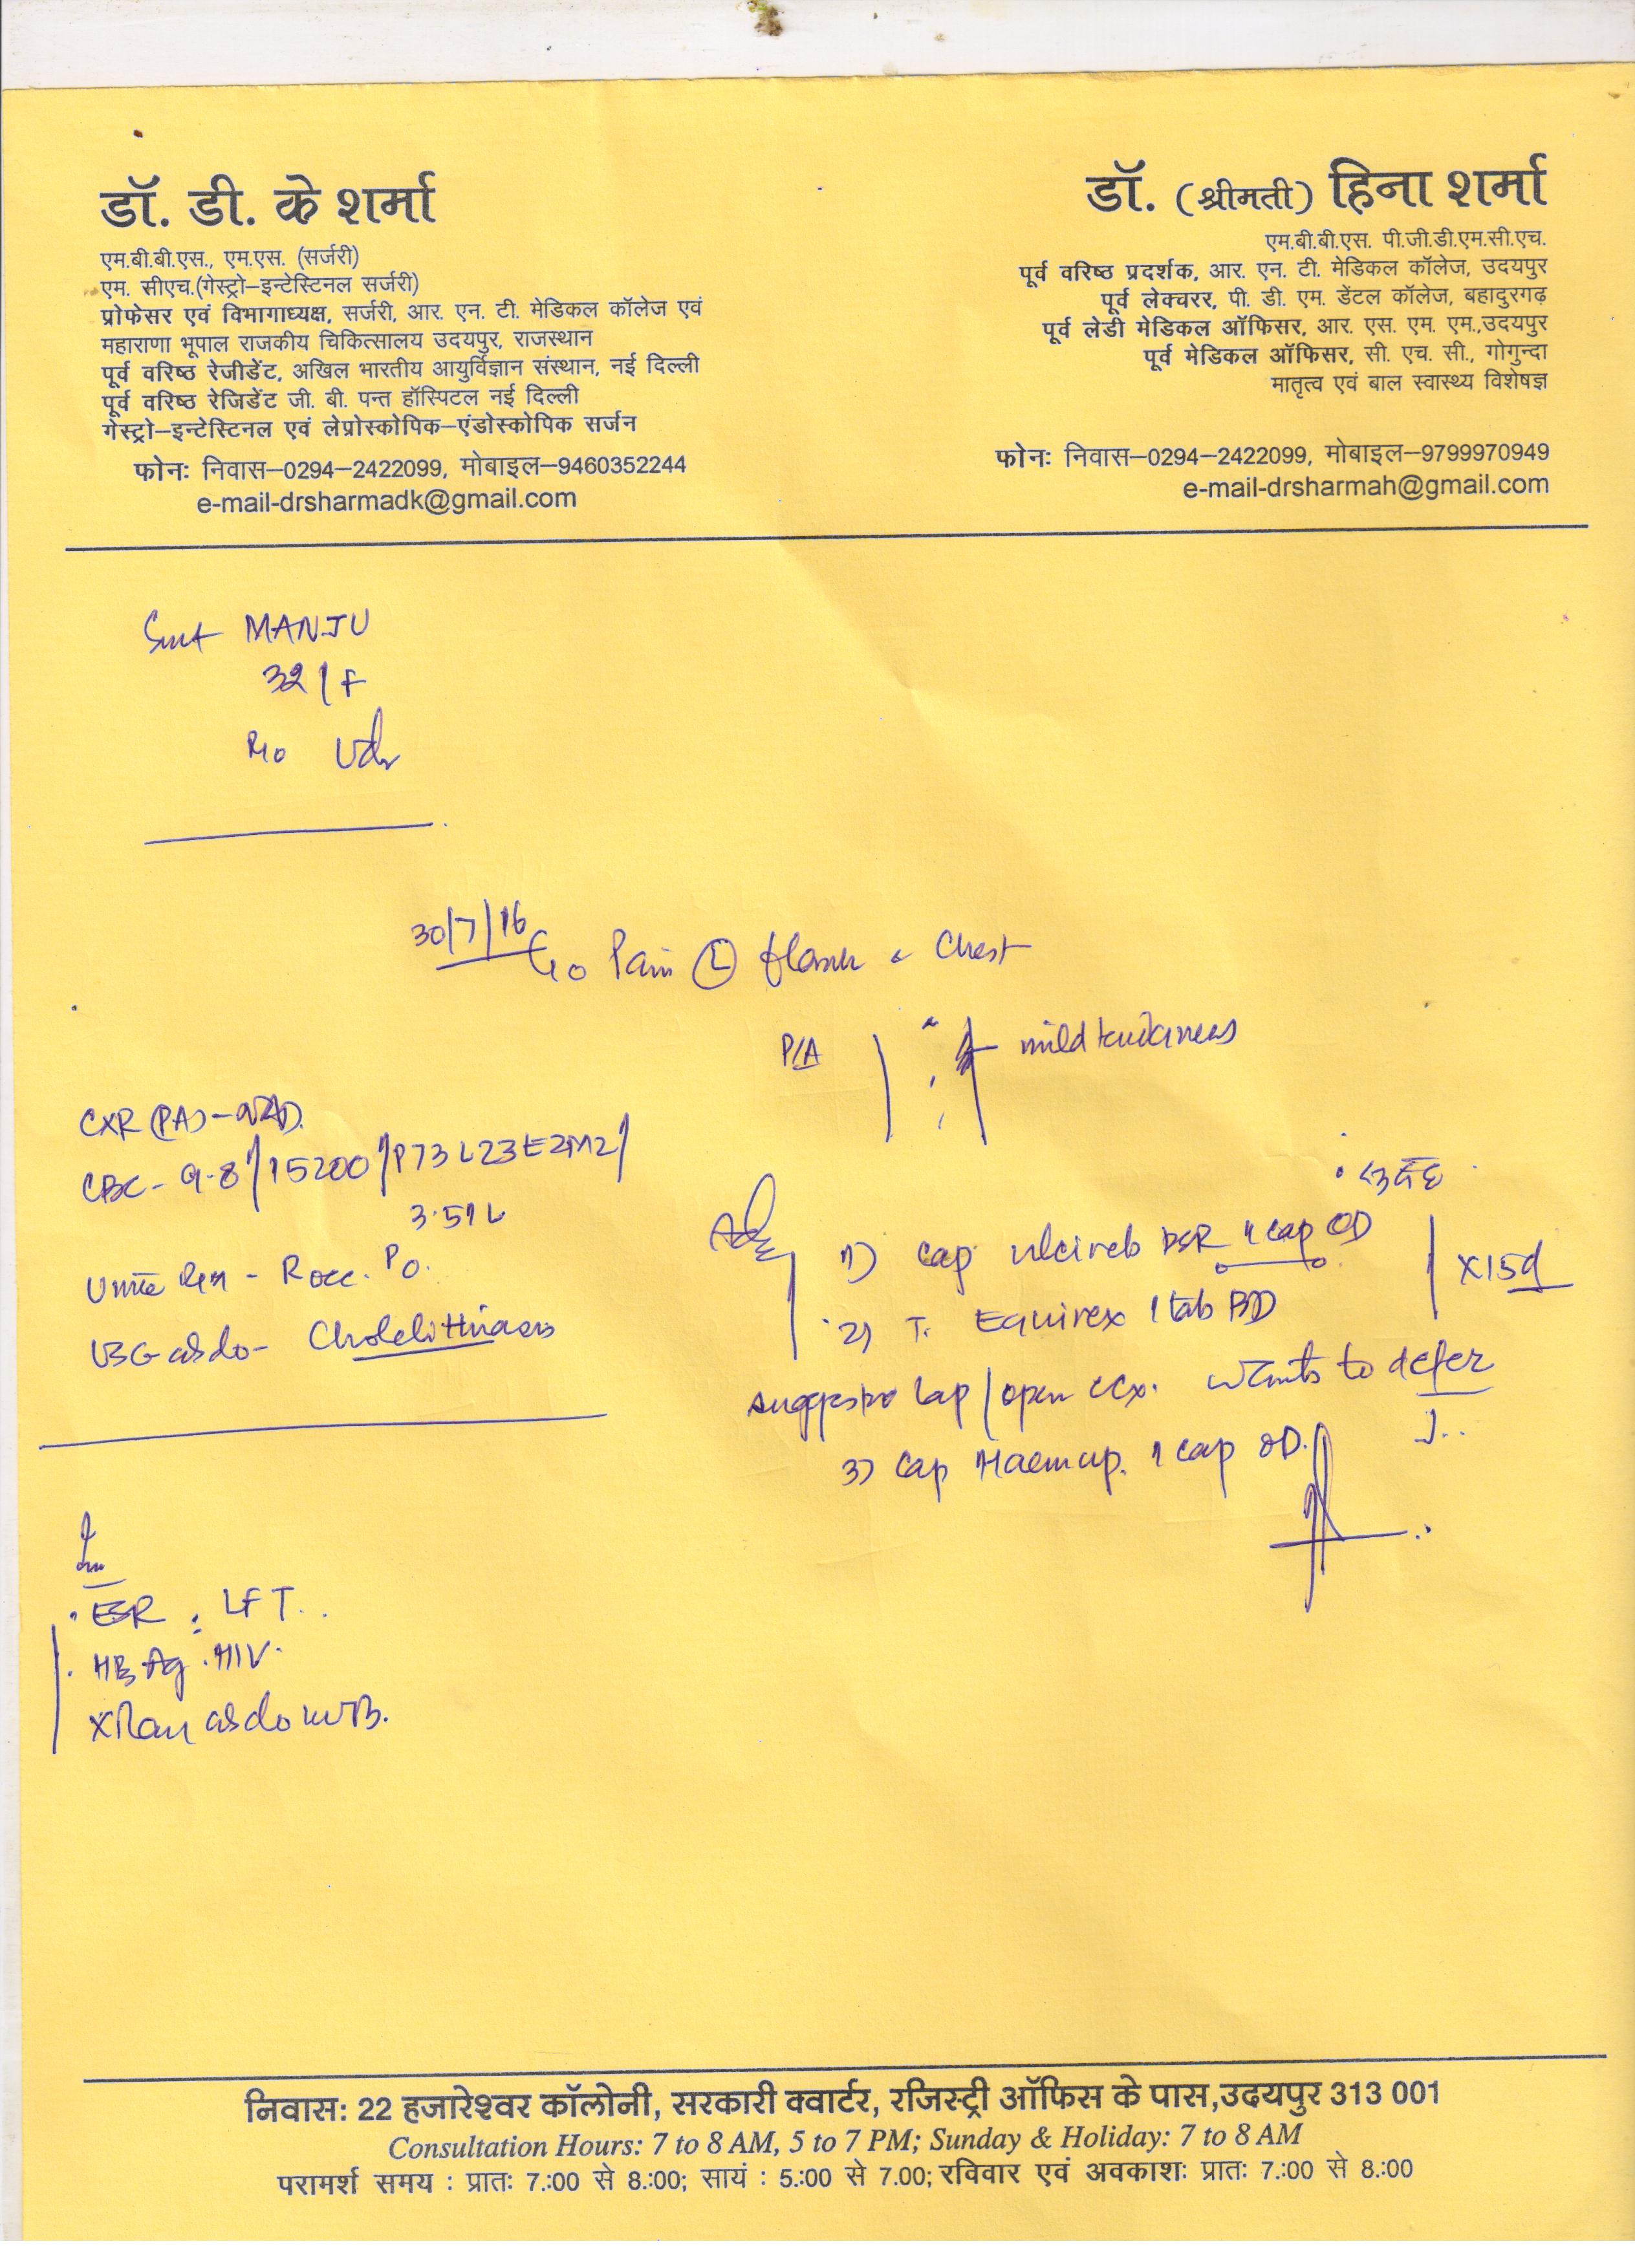 डॉ. डी. के शर्मा
एम.बी.बी.एस., एम.एस. (सर्जरी)
एम. सीएच.(गेस्ट्रो–इन्टेस्टिनल सर्जरी)
प्रोफेसर एवं विभागाध्यक्ष, सर्जरी, आर. एन. टी. मेडिकल कॉलेज एवं
महाराणा भूपाल राजकीय चिकित्सालय उदयपुर, राजस्थान
पूर्व वरिष्ठ रेजीडेंट, अखिल भारतीय आयुर्विज्ञान संस्थान, नई दिल्ली
पूर्व वरिष्ठ रेजिडेंट जी. बी. पन्त हॉस्पिटल नई दिल्ली
गेस्ट्रो–इन्टेस्टिनल एवं लेप्रोस्कोपिक–एंडोस्कोपिक सर्जन
फोनः निवास–0294–2422099, मोबाइल–9460352244
e-mail-drsharmadk@gmail.com
डॉ. (श्रीमती) हिना शर्मा
एम.बी.बी.एस. पी.जी.डी.एम.सी.एच.
पूर्व वरिष्ठ प्रदर्शक, आर. एन. टी. मेडिकल कॉलेज, उदयपुर
पूर्व लेक्चरर, पी. डी. एम. डेंटल कॉलेज, बहादुरगढ़
पूर्व लेडी मेडिकल ऑफिसर, आर. एस. एम. एम.,उदयपुर
पूर्व मेडिकल ऑफिसर, सी. एच. सी., गोगुन्दा
मातृत्व एवं बाल स्वास्थ्य विशेषज्ञ
फोनः निवास–0294–2422099, मोबाइल–9799970949
e-mail-drsharmah@gmail.com
Smt MANJU
32/F
R/o Udr
30/7/16
C/o Pain (L) flank & Chest
P/A mild
CXR (PA) - NAD.
CBC - 9.8/15200/P73 L23 E2M2/
3.51 L
Urine - R occ. P o.
USG abdo - Cholelithiasis
Adv
1) Cap DSR 1 cap OD
2) T. Equirex 1 tab BD
X15d
lap/open CCx. Wants to defer
3) Cap Haem up. 1 cap OD.
ESR : LFT.
HBsAg . HIV.
XRay abdo
निवासः 22 हजारेश्वर कॉलोनी, सरकारी क्वार्टर, रजिस्ट्री ऑफिस के पास,उदयपुर 313 001
Consultation Hours: 7 to 8 AM, 5 to 7 PM; Sunday & Holiday: 7 to 8 AM
परामर्श समय : प्रातः 7.:00 से 8.:00; सायं : 5.:00 से 7.00; रविवार एवं अवकाशः प्रातः 7.:00 से 8.:00